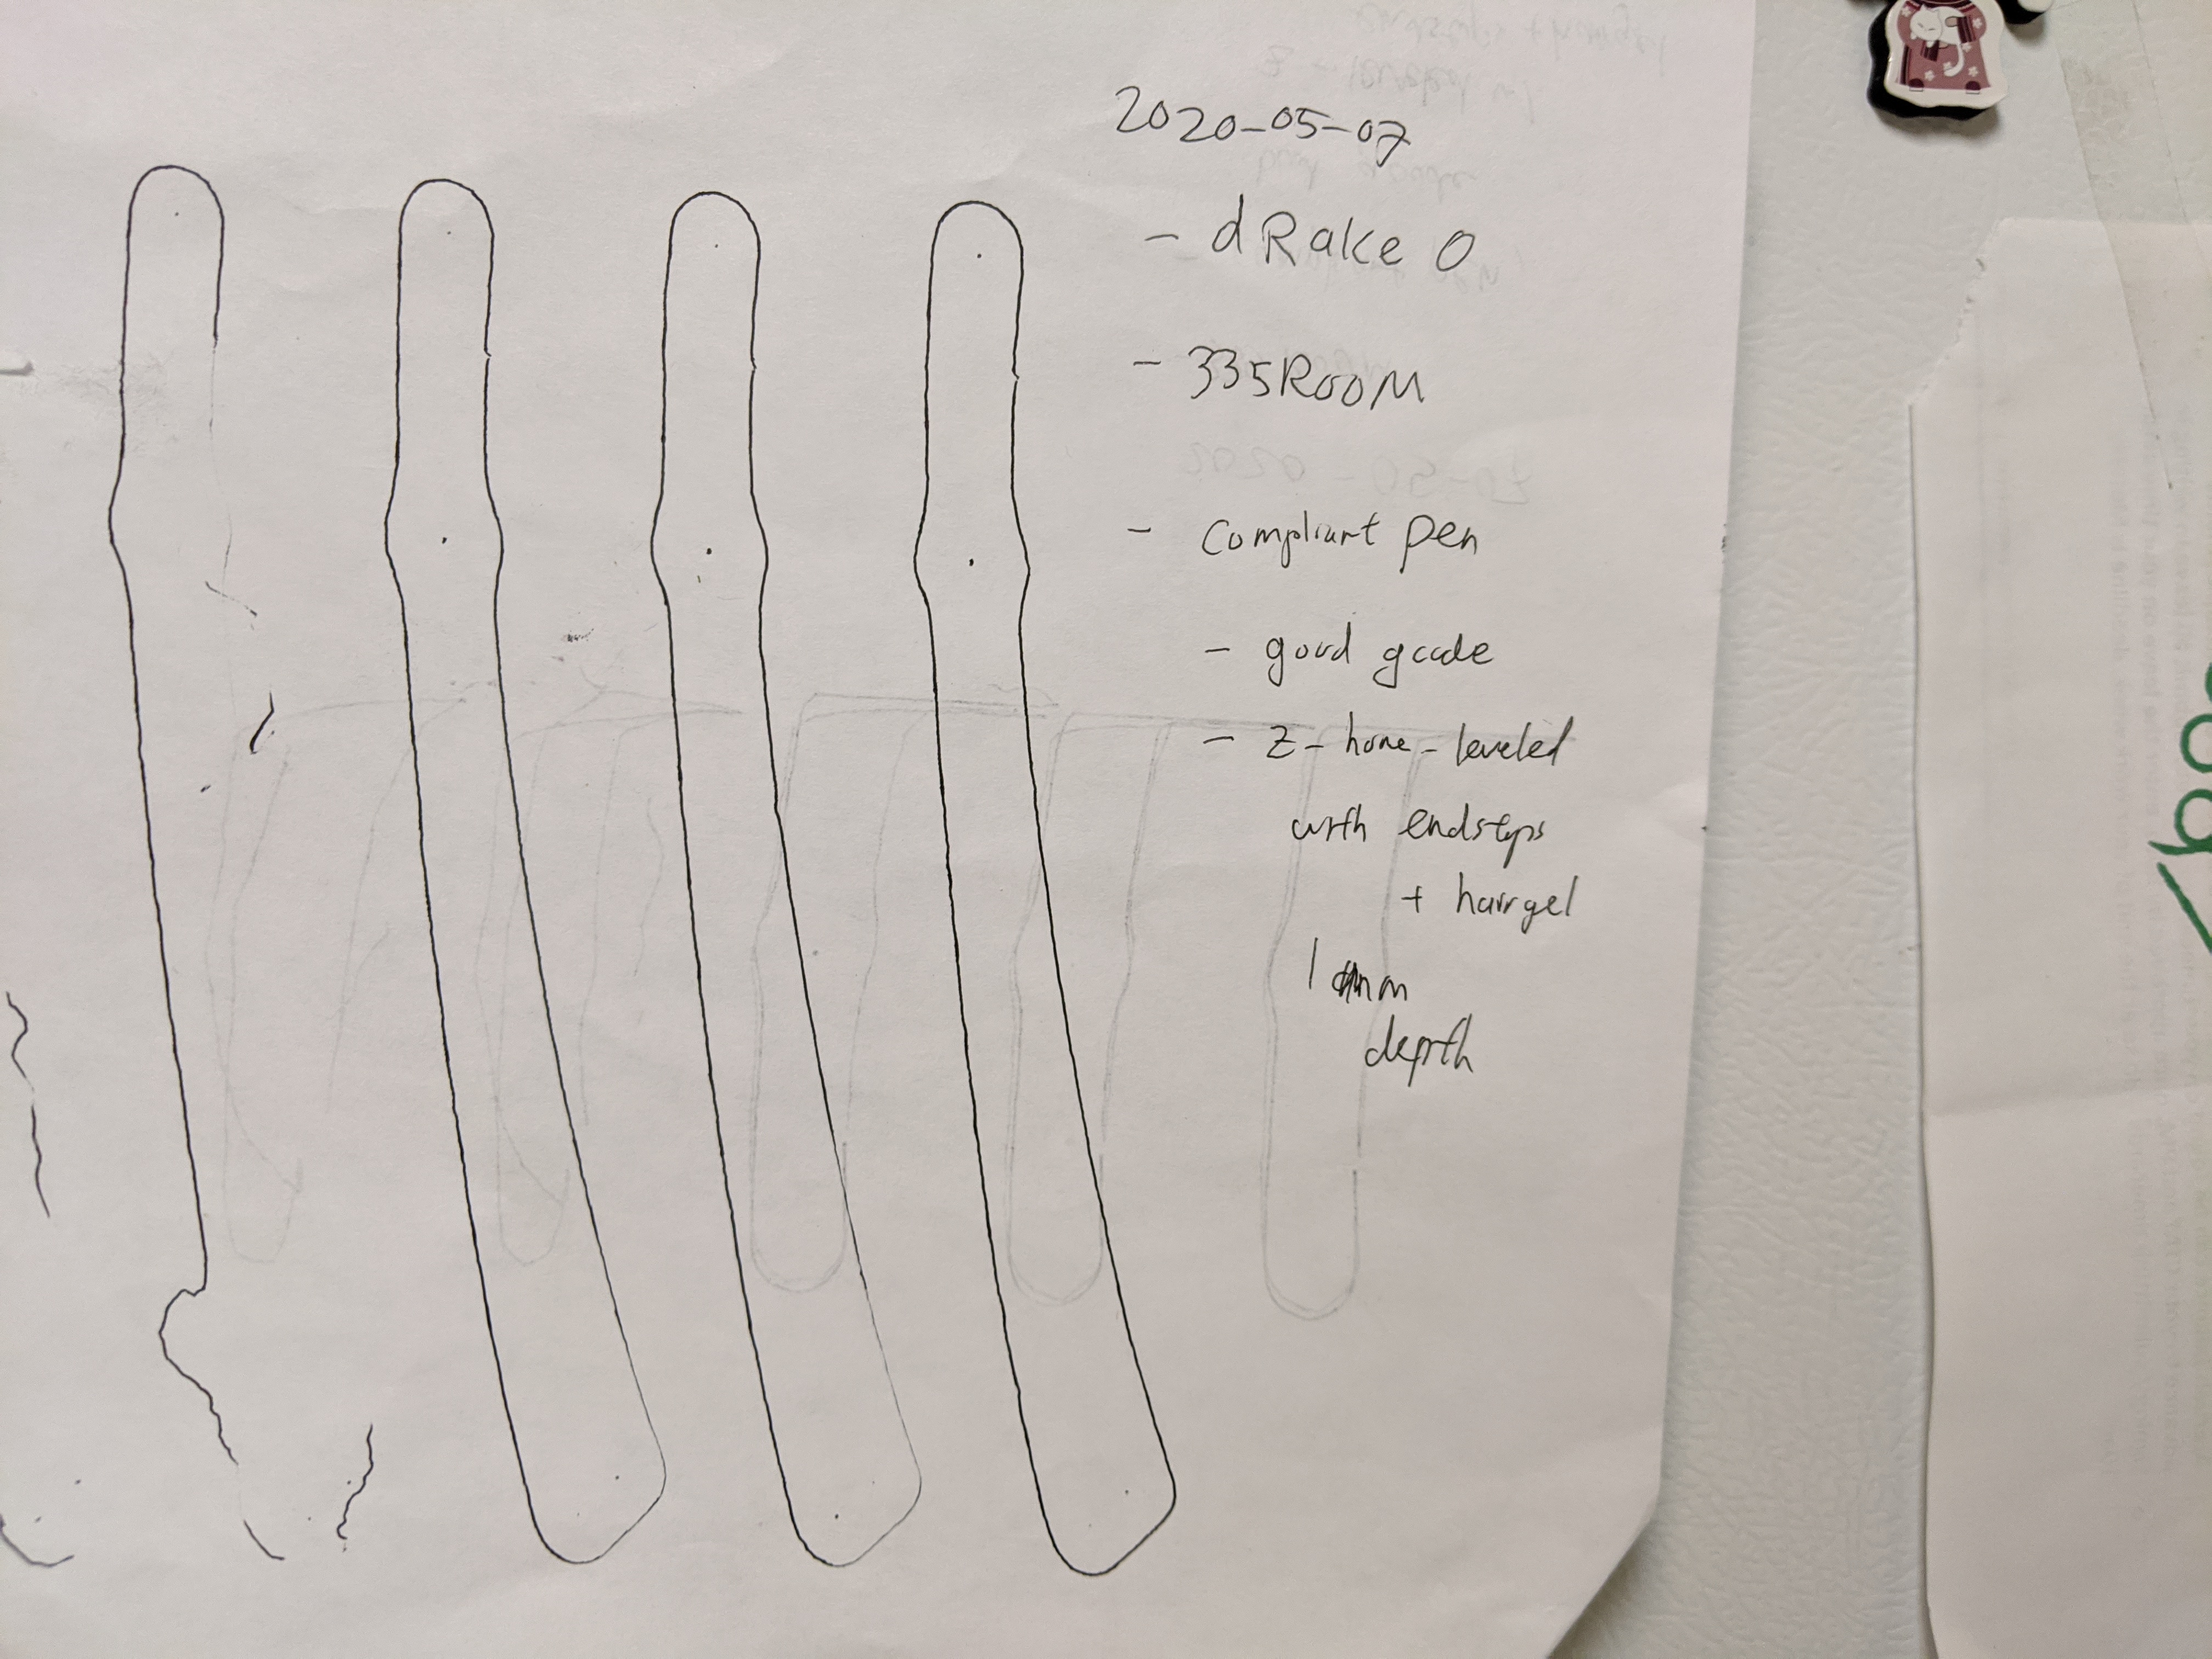 2020-05-07
- dRake 0
- 335RooM
- compliant pen
- good gcode
- z-home-leveled
with endstops
+ hairgel
1 mm
depth